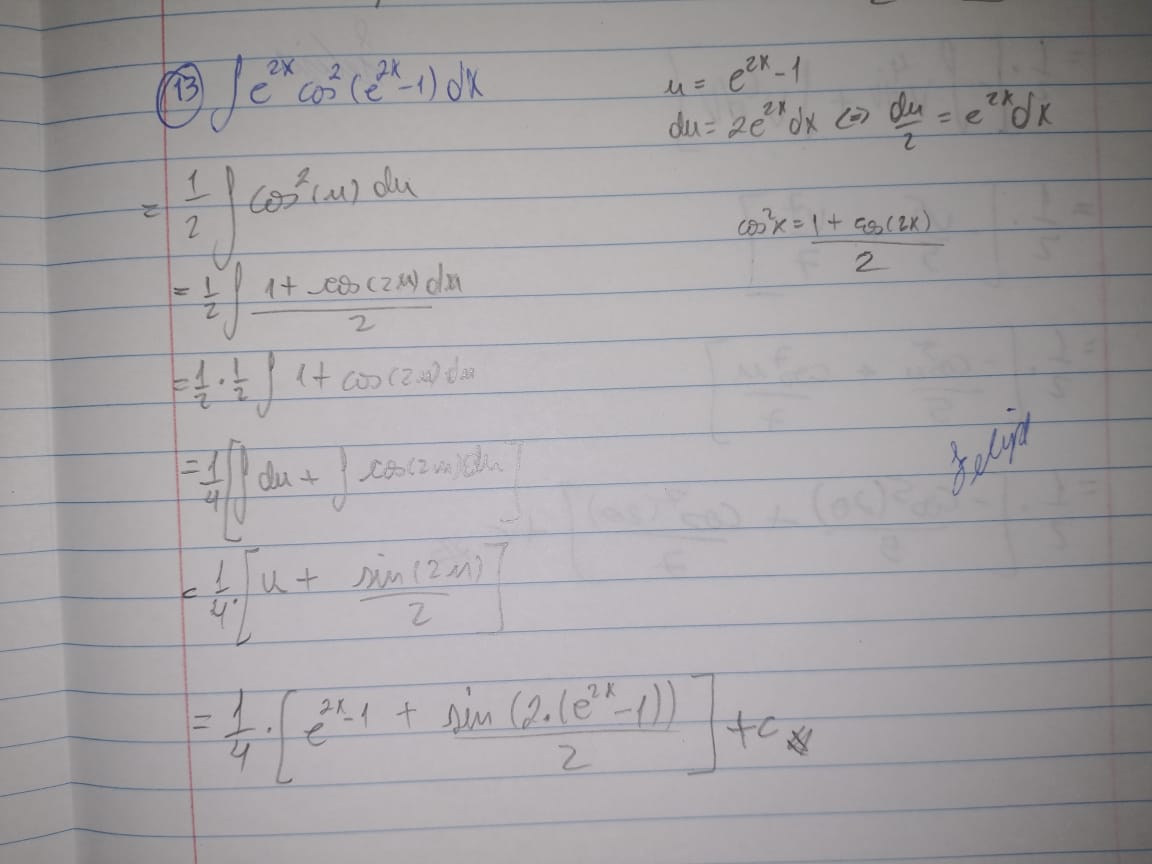 13 ∫ e^{2x} cos²(e^{2x}-1) dx
u = e^{2x} - 1
du = 2e^{2x} dx ⇔ du/2 = e^{2x} dx
= 1/2 ∫ cos²(u) du
cos²x = (1 + cos(2x))/2
= 1/2 ∫ (1 + cos(2u) du)/2
= 1/2 · 1/2 ∫ 1 + cos(2u) du
= 1/4 [∫ du + ∫ cos(2u) du]
= 1/4 · [u + sin(2u)/2]
= 1/4 · [e^{2x} - 1 + sin(2·(e^{2x} - 1))/2] + c